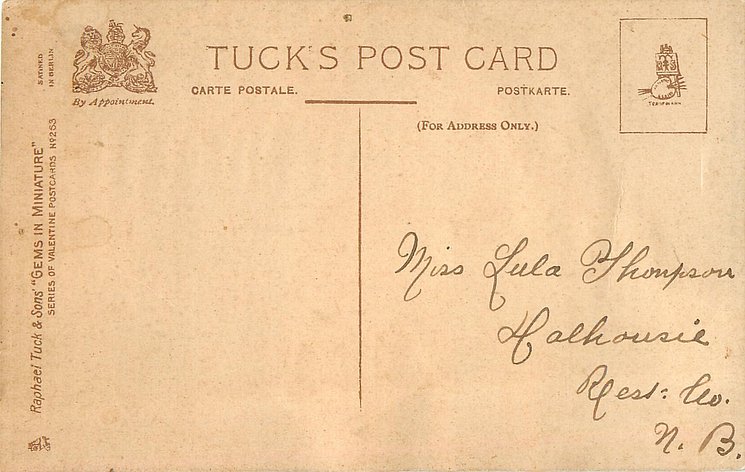 TUCK'S POST CARD
CARTE POSTALE. POSTKARTE.
(FOR ADDRESS ONLY.)
By Appointment.
SATINED
IN BERLIN
Raphael Tuck & Sons' "GEMS IN MINIATURE"
SERIES OF VALENTINE POSTCARDS Nº 263
Miss Lula Thompson
Dalhousie
Rest. Co.
N. B.